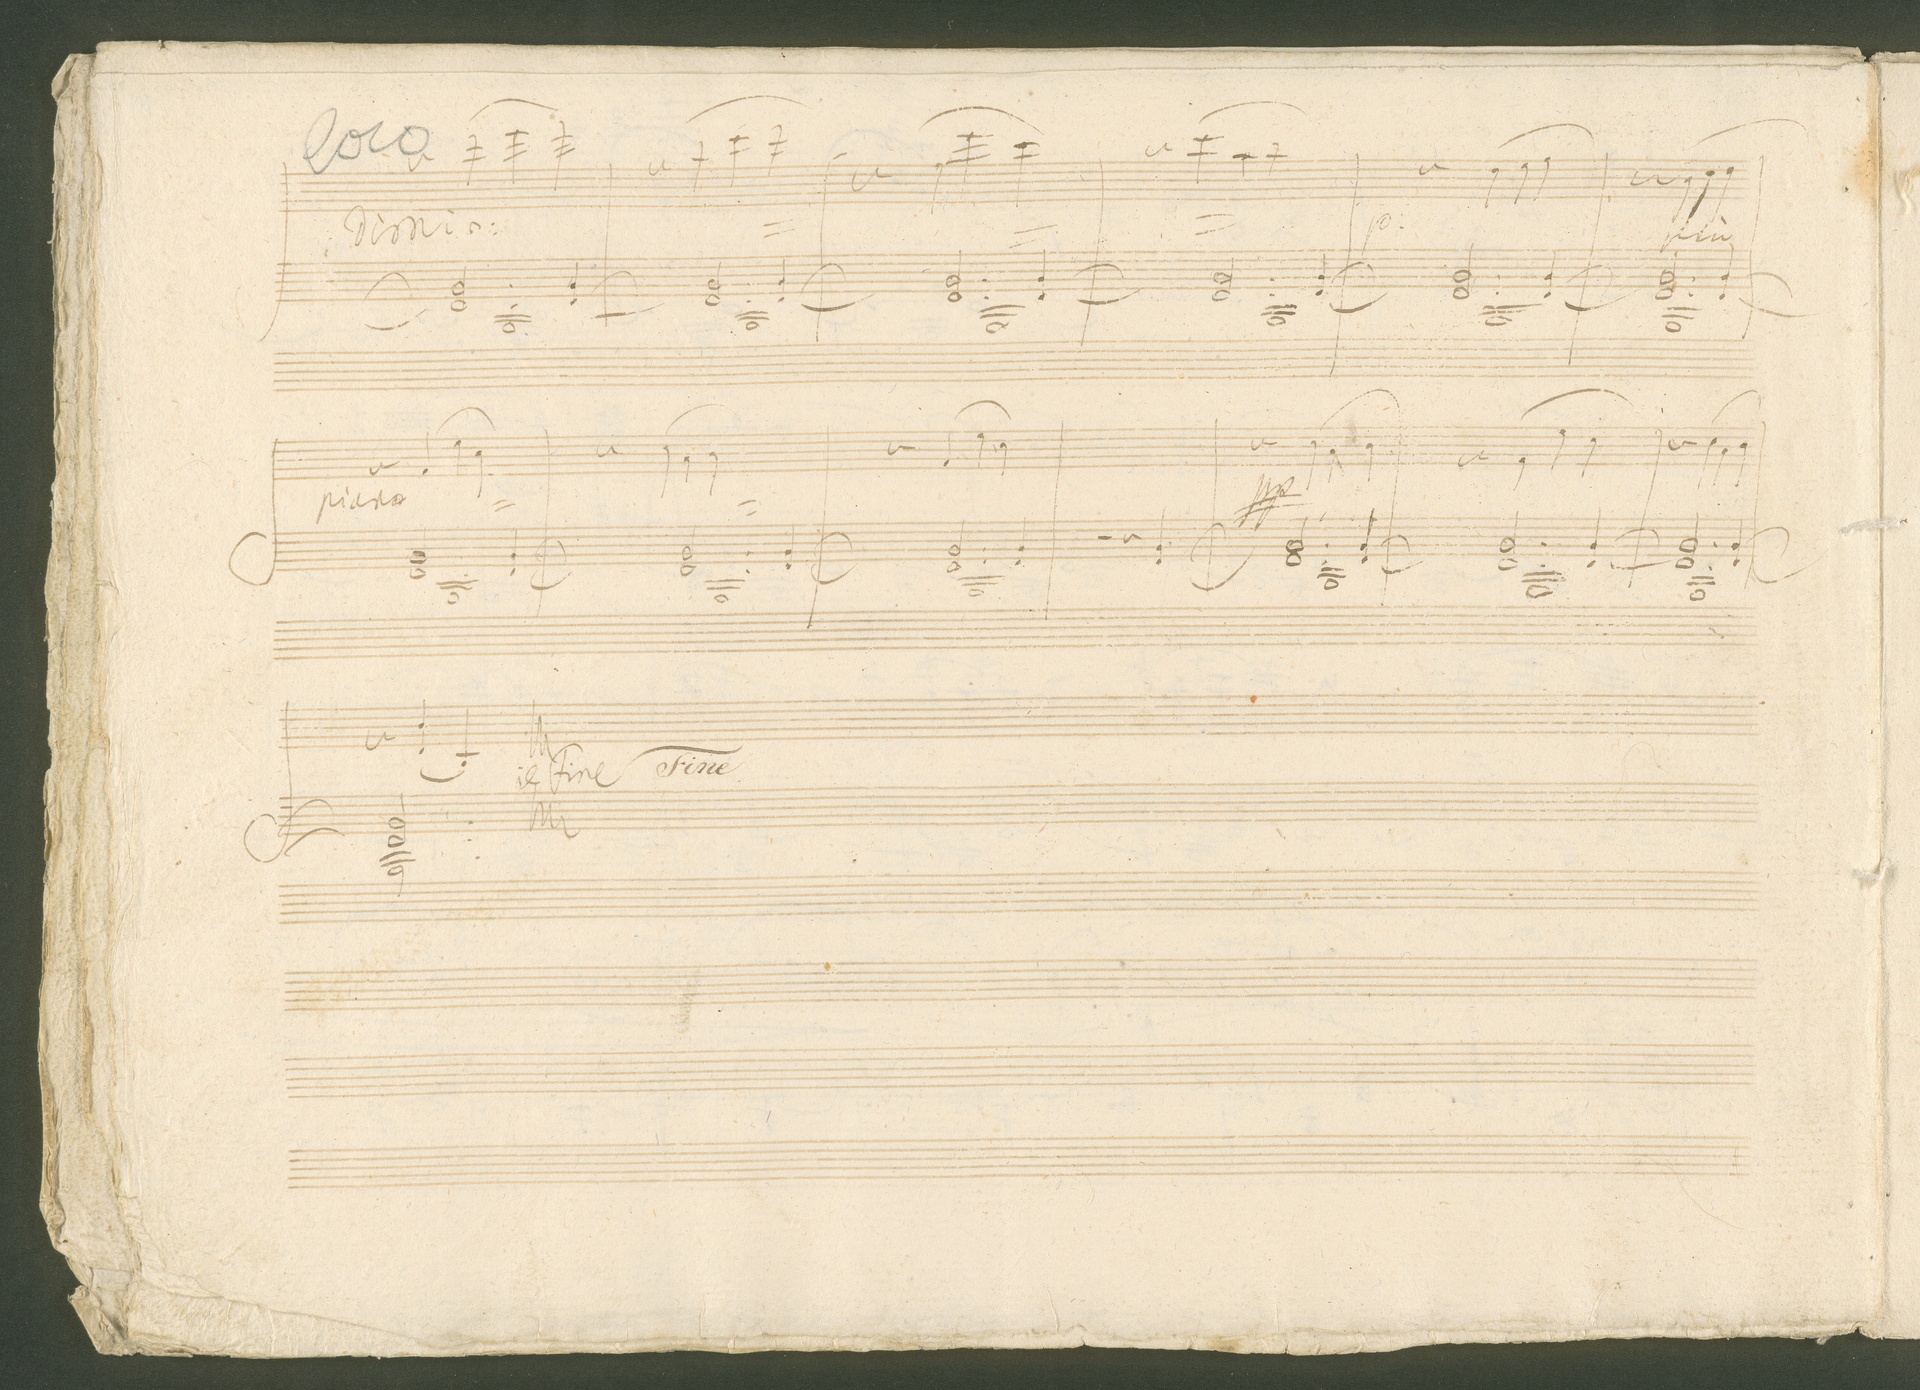 loco
dimin:
p. più
piano
pp
il Fine Fine